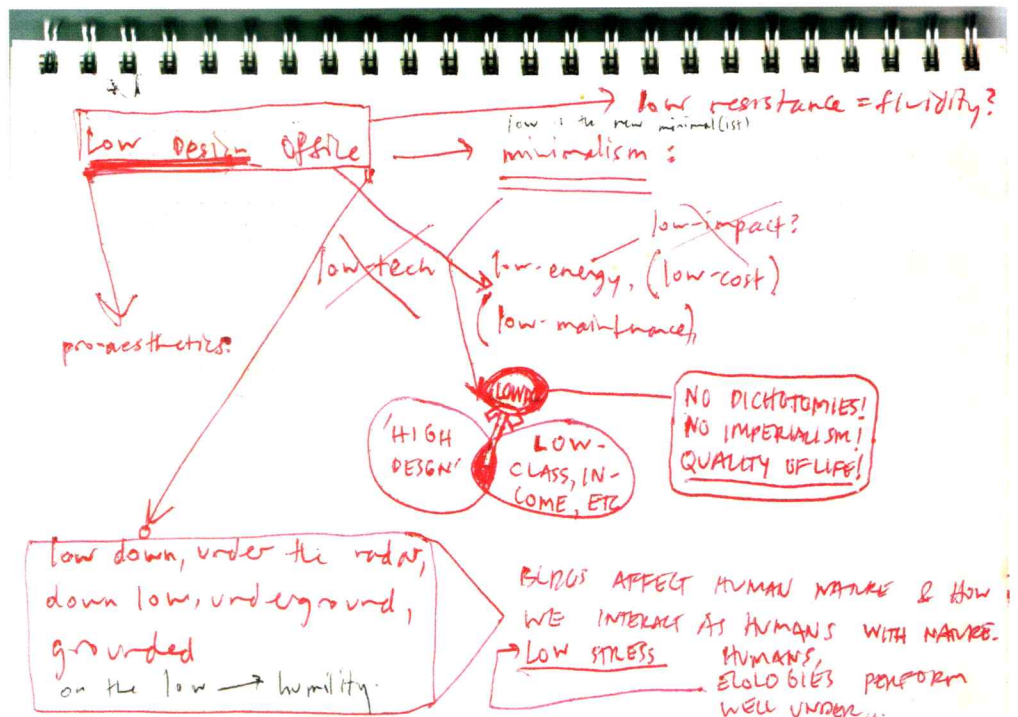 low resistance = fluidity?
Low Design Office
low is the new minimal(ist)
minimalism :
low-impact?
low-tech
low-energy, (low-cost)
(low-maintnance),
pro-aesthetics.
LOWDO
'HIGH
DESIGN'
LOW-
CLASS, IN-
COME, ETC
NO DICHOTOMIES!
NO IMPERIALISM!
QUALITY OF LIFE!
low down, under the radar,
down low, underground,
grounded
on the low → humility.
BLDGS AFFECT HUMAN NATURE & HOW
WE INTERACT AS HUMANS WITH NATURE.
LOW STRESS
HUMANS,
ECOLOGIES PERFORM
WELL UNDER...